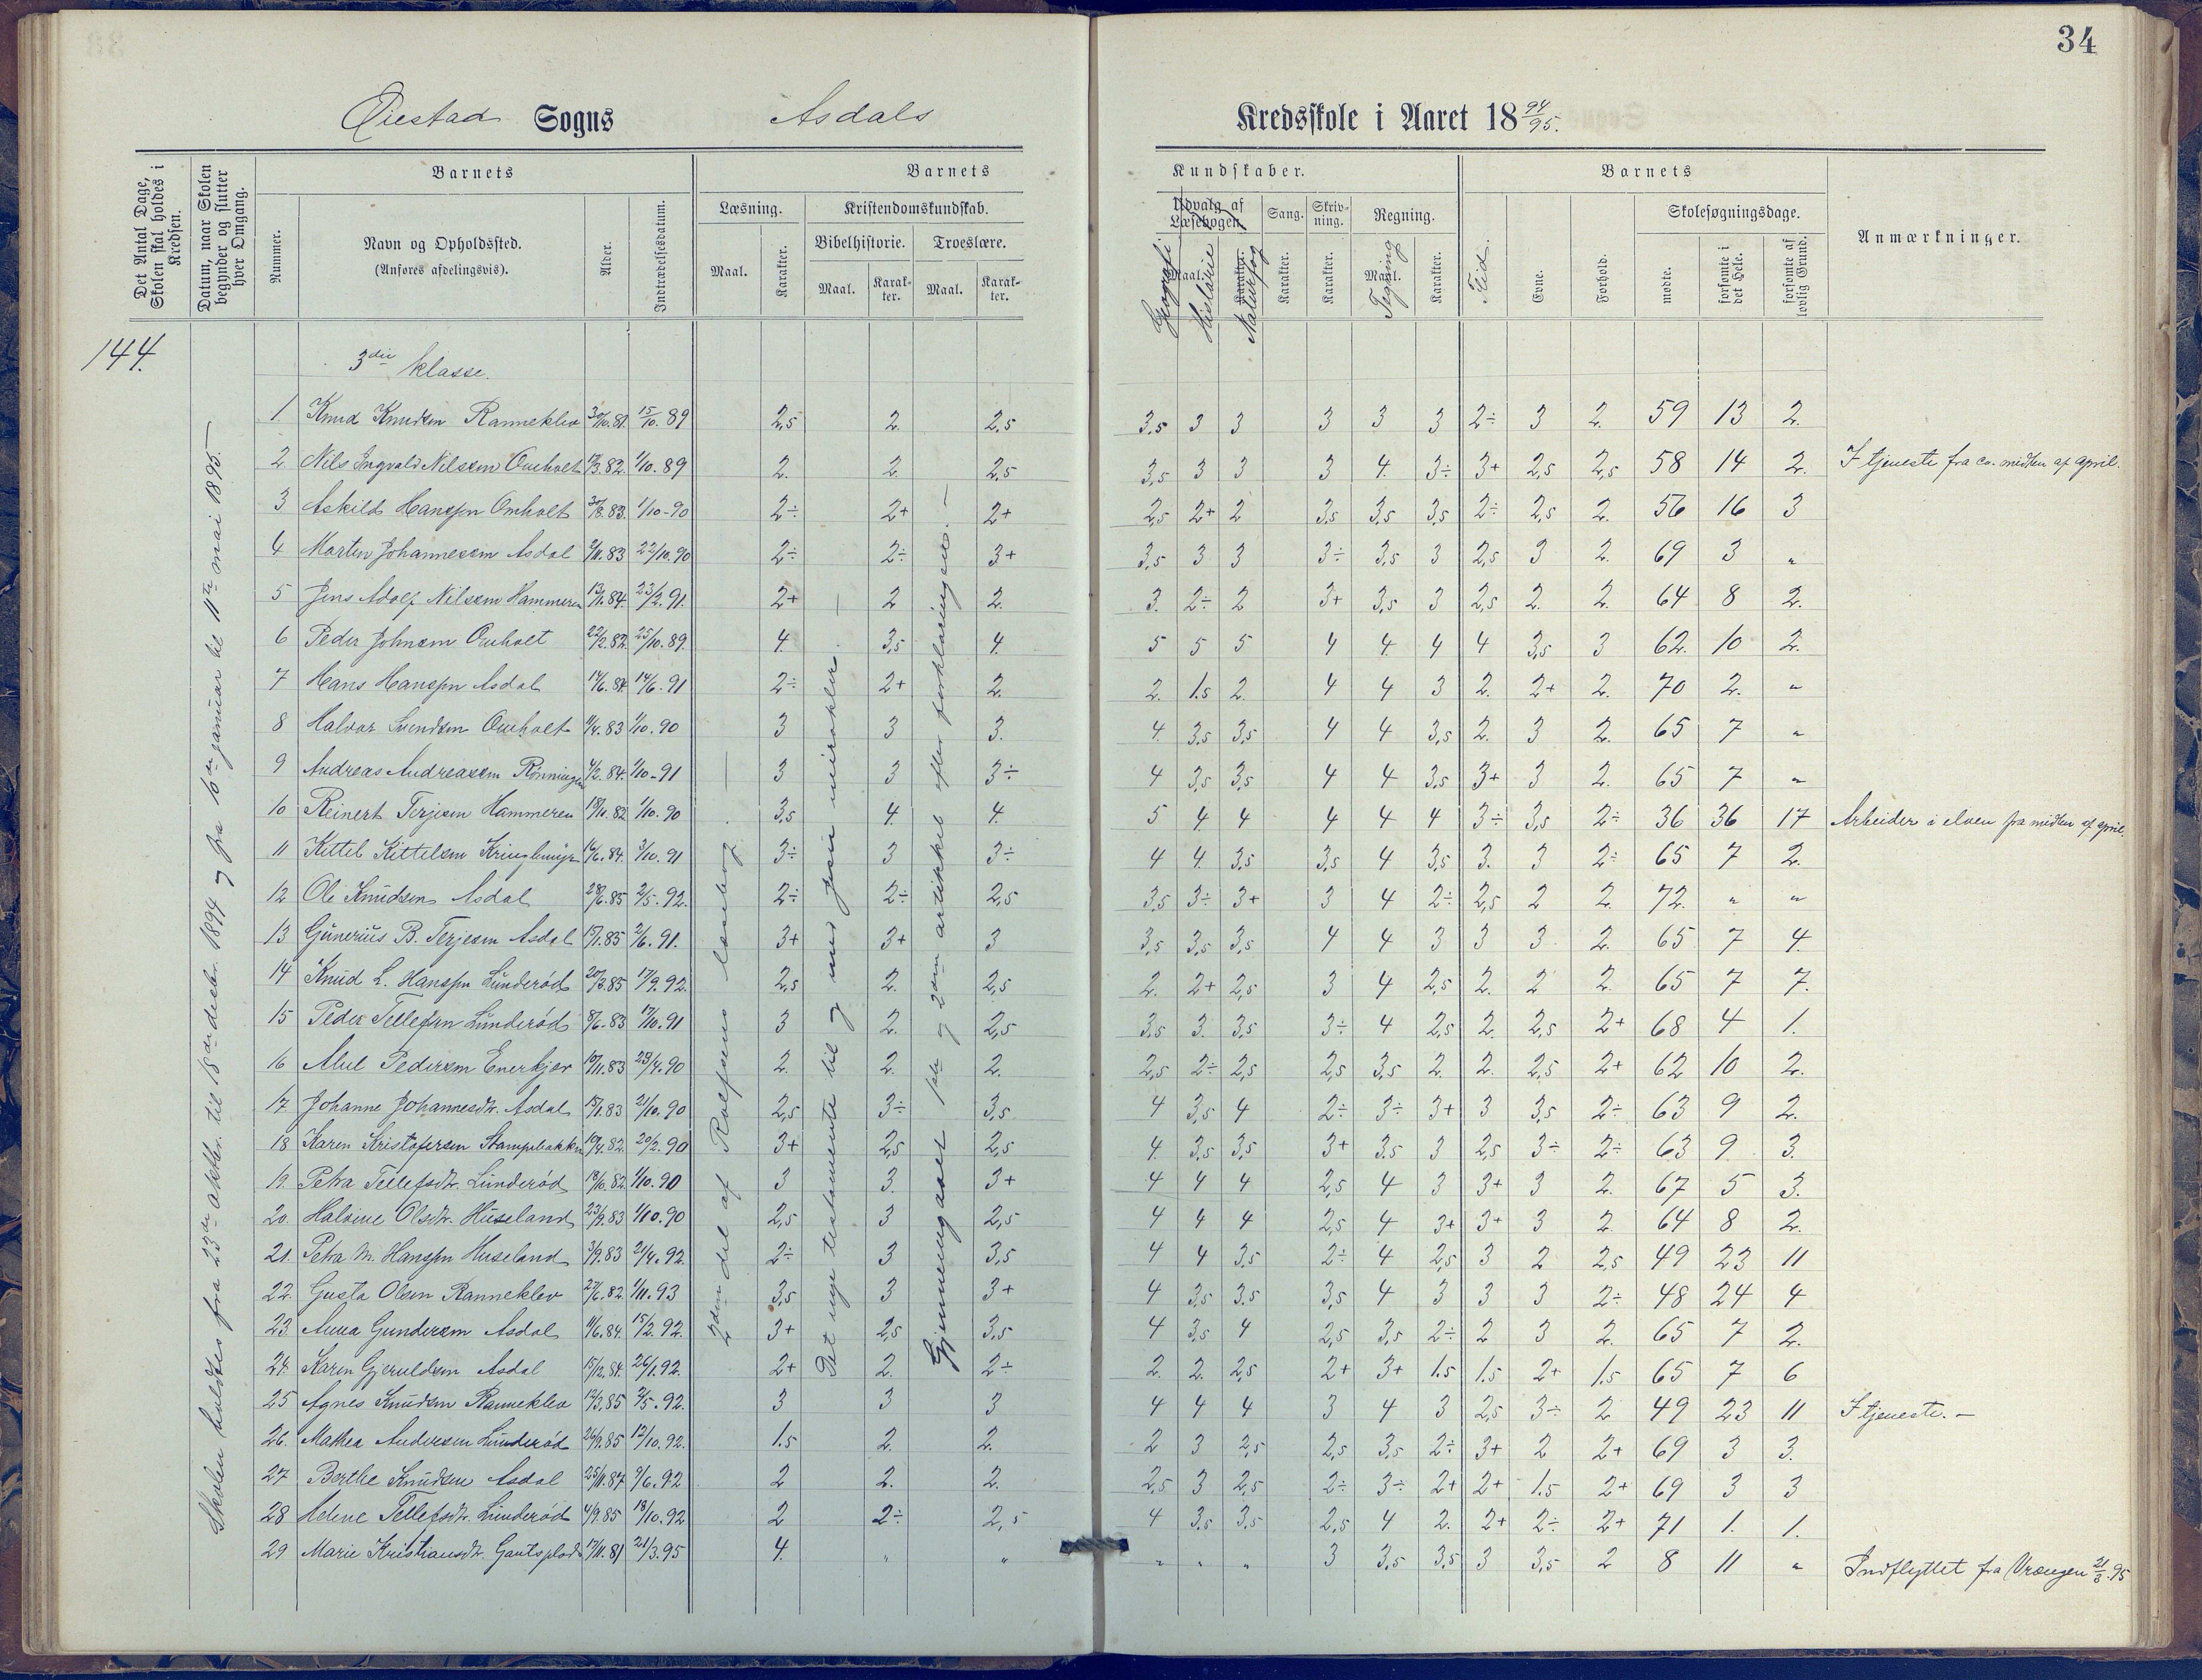 34
Øiestad Sogns Asdals Kredsskole i Aaret 18 94/95.
Det Antal Dage, Skolen skal holdes i Kredsen.
Datum, naar Skolen begynder og slutter hver Omgang.
Barnets
Nummer.
Navn og Opholdssted.
(Anføres afdelingsvis).
Alder.
Indtrædelsesdatum.
Barnets Kundskaber.
Læsning.
Maal.
Karakter.
Kristendomskundskab.
Bibelhistorie.
Maal.
Karakter.
Troeslære.
Maal.
Karakter.
Udvalg af Læsebogen.
Maal.
Karakter.
Geografi
Historie
Naturfag
Sang.
Karakter.
Skrivning.
Karakter.
Regning.
Maal.
Tegning
Karakter.
Barnets
Flid.
Evne.
Forhold.
Skolesøgningsdage.
mødte.
forsømte i det Hele.
forsømte af lovlig Grund.
Anmærkninger.
144.
Skolen holdtes fra 23de oktbr. til 18de decbr. 1894 og fra 10de januar til 11te mai 1895.
2den del af Rolfsens læsebog.
Det nye testamente til og med Jesu mirakler.
Gjennemgaaet 1ste og 2den artikkel efter forklaringen.
3die klasse.
1 Knud Knudsen Ranneklev 15/10.89 2,5 2. 2,5 3,5 3 3 3 3 3 2÷ 3 2. 59 13 2.
2 Nils Ingvald Nilsen Omholt 1/10.89 2. 2. 2,5 3,5 3 3 3 4. 3÷ 3+ 2,5 2,5 58 14 2. I tjeneste fra ca. midten af april.
3 Askild Hanssen Omholt 1/10-90 2÷ 2+ 2+ 2,5 2+ 2 3,5 3,5 3,5 2÷ 2,5 2. 56 16 3
4 Marten Johannesen Asdal 22/10.90 2÷ 2÷ 3+ 3,5 3 3 3÷ 3,5 3 2,5 3 2. 69 3 "
5 Jens Adolf Nilsen Hammeren 23/2.91. 2+ 2 2. 3. 2÷ 2 3+ 3,5 3 2,5 2. 2. 64 8 2.
6 Peder Johnsen Omholt 22/2.82. 25/10.89. 4. 3,5 4. 5 5 5 4 4. 4 4 3,5 3 62. 10 2.
7 Hans Hanssen Asdal 14/6.84 14/6.91 2÷ 2+ 2. 2. 1.5 2. 4 4 3 2. 2+ 2. 70 2. "
8 Halvor Svendsen Omholt 1/10.90 3 3 3. 4. 3,5 3,5 4 4 3,5 2. 3 2. 65 7 "
9 Andreas Andreasen Rønningen 1/10-91 3 3 3÷ 4 3,5 3,5 4 4 3,5 3+ 3 2. 65 7 "
10 Reinert Terjesen Hammeren 18/11.82 1/10.90 3,5 4. 4. 5 4 4 4 4 4 3÷ 3,5 2÷ 36 36 17 Arbeider i elven fra midten af april.
11 Kittel Kittelsen 3/10.91 3÷ 3 3÷ 4 4. 3,5 3,5 4 3,5 3. 3 2÷ 65 7 2.
12 Ole Knudsen Asdal 2/5.92. 2÷ 2÷ 2,5 3,5 3÷ 3+ 3 4 2÷ 2,5 2 2. 72. " "
13 Gunerius B. Terjesen Asdal 15/1.85 2/6.91. 3+ 3+ 3 3,5 3,5 3,5 4 4 3 3 3 2. 65 7 4.
14 Knud L. Hanssen Lunderød 17/9.92. 2,5 2. 2,5 2. 2+ 2,5 3 4 2,5 2. 2 2. 65 7 7.
15 Peder Tellefsen Lunderød 8/6.83 17/10.91 3 2. 2,5 3,5 3. 3,5 3÷ 4 2,5 2. 2,5 2+ 68 4 1.
16 Pedersen Enerkjær 10/11.83 29/4.90 2. 2. 2. 2,5 2÷ 2,5 2,5 3,5 2. 2. 2,5 2+ 62 10 2.
17 Johanne Johannesdtr. Asdal 15/1.83 21/10.90 2,5 3÷ 3,5 4 3,5 4 2÷ 3÷ 3+ 3 3,5 2÷ 63 9 2.
18 Karen Kristofersen Stampebakken 20/2.90 3+ 2,5 2,5 4. 3,5 3,5 3+ 3.5 3 2,5 3÷ 2÷ 63 9 3.
19. Petra Tellefsdtr. Lunderød 18/10.82. 1/10.90 3 3. 3+ 4 4 4 2,5 4 3 3+ 3 2. 67 5 3.
20. Halvine Olsdtr. Huseland 23/9.83 1/10.90 2,5 3 2,5 4 4 4 2,5 4 3+ 3+ 3 2. 64 8 2.
21. Petra M. Hanssen Huseland 3/9.83 21/4.92. 2÷ 3 3,5 4 4 3,5 2÷ 4 2,5 3 2 2,5 49 23 11
22. Gusta Olsen Ranneklev 27/6.82. 1/11.93 3,5 3 3+ 4 3,5 3.5 3,5 4 3 3 3 2÷ 48 24 4
23. Anna Gundersen Asdal 11/6.84. 15/2.92. 3+ 2,5 3,5 4 3,5 4 2,5 3,5 2÷ 2 3 2. 65 7 2.
24. Karen Gjeruldsen Asdal 15/12.84. 26/1.92. 2+ 2. 2÷ 2. 2. 2,5 2+ 3+ 1.5 1.5 2+ 1.5 65 7 6
25 Agnes Knudsen Ranneklev 12/3.85 2/5.92. 3 3 3 4 4 4 3 4 3 2,5 3÷ 2 49 23 11 I tjeneste. —
26. Mathea Andersen Lunderød 26/9.85 12/10.92. 1.5 2. 2. 2 3 2,5 2,5 3,5 2÷ 3+ 2 2+ 69 3 3.
27 Berthe Knudsen Asdal 9/6.92 2 2. 2. 2,5 3 2,5 2÷ 3÷ 2+ 2+ 1.5 2+ 69 3 3
28 Helene Tellefsdtr. Lunderød 4/9.85 18/10.92 2 2÷ 2,5 4 3.5 3,5 2,5 4 2. 2+ 2÷ 2+ 71 1. 1.
29 Marie Kristiansdtr. 17/11.81 21/3.95 4. " " " " " 3 3,5 3,5 3 3,5 2 8 11 " Indflyttet fra Vrængen 21/3.95